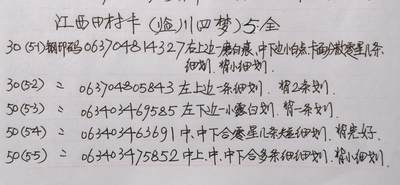 江西田村卡(临川四梦)5全
30(5-1)钢印码063704814327左上近一磨白痕、中下近小白点、卡面分散零星几条
细划.背小细划.
30(5-2) = 063704805843左上近一条细划. 背2条划.
50(5-3) = 063403469585左下近一小露白划. 背一条划.
50(5-4) = 063403463691中.中下合零星几条短细划. 背完好.
50(5-5) = 063403475852中上.中.中下合多条细细划. 背小细划.